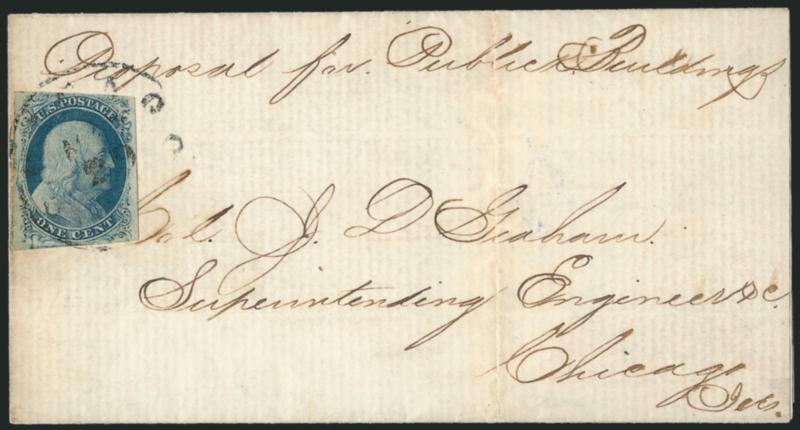 Proposal for Public Buildings
U.S. POSTAGE
ONE CENT
Col. J. D. Graham.
Superintending Engineer &c.
Chicago
Ills.